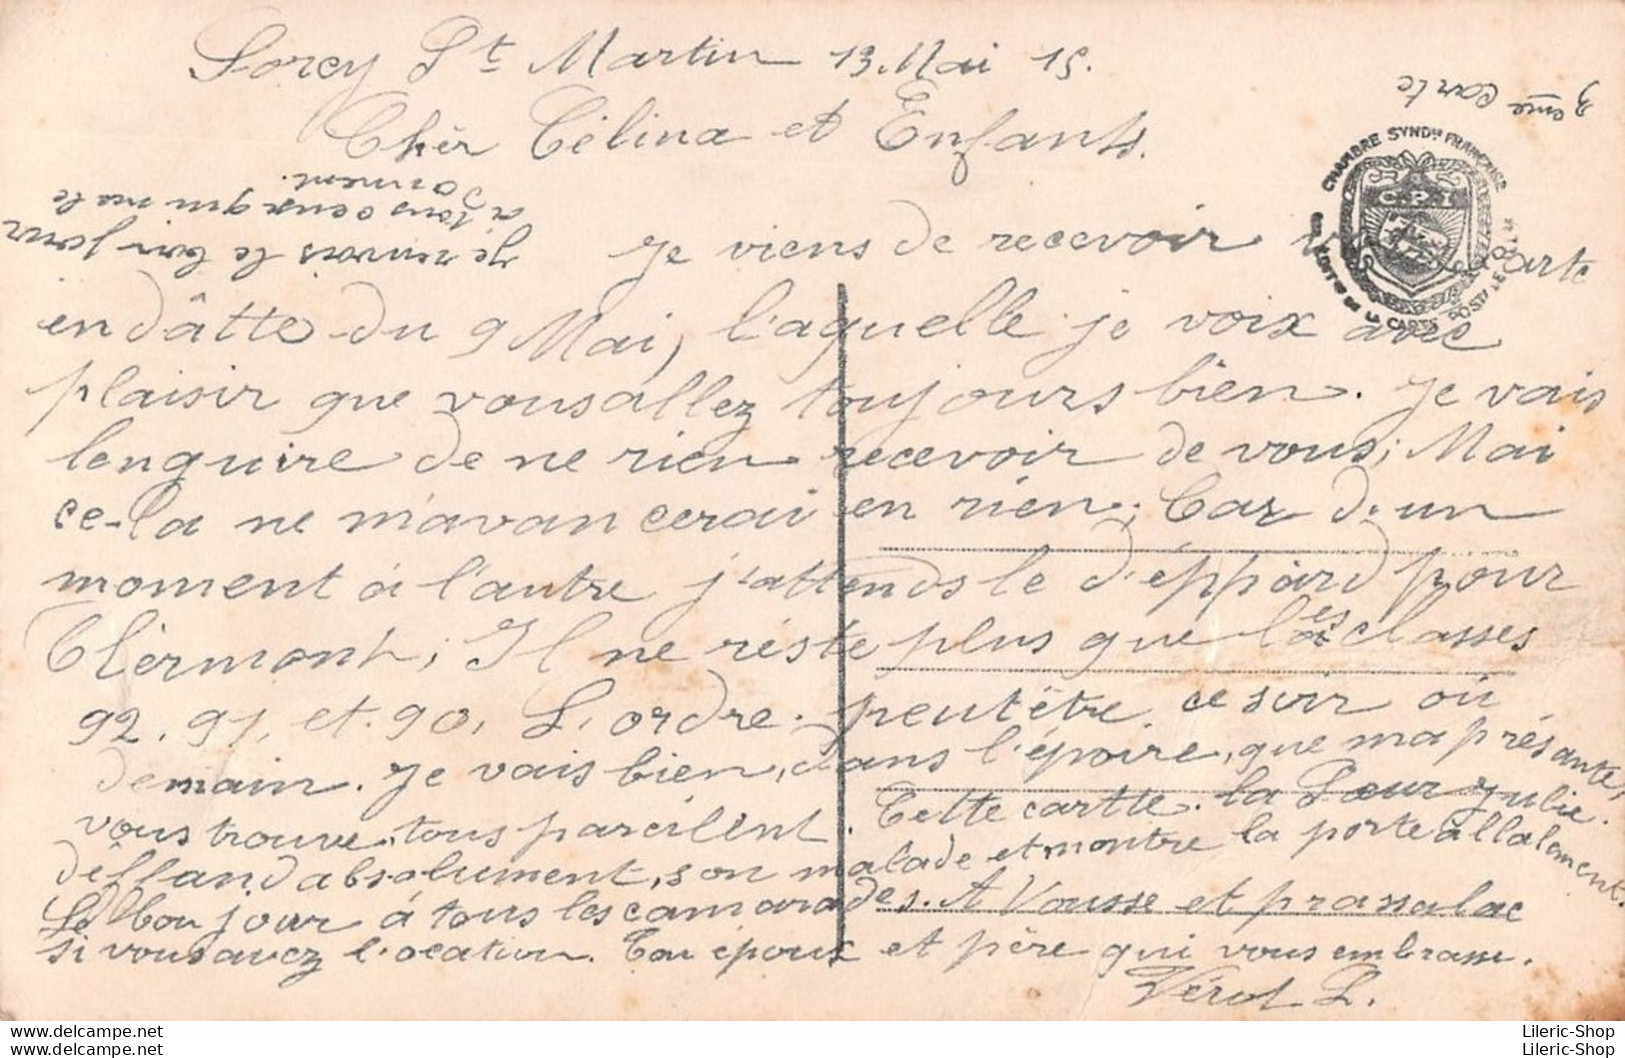 Sorcy St Martin 13. Mai 15.
3ème Carte
Chèr Célina et Enfants.
Je renvois le bonjour
a tous ceux qui me le
donnent.
CHAMBRE SYNDle FRANÇAISE
C.P.I
DE LA CARTE POSTALE ILLtée
Je viens de recevoir carte
en dâtte du 9 Mai, l'aquelle je voix avec
plaisir que vous allez toujours bien. Je vais
lenguire de ne rien recevoir de vous; Mai
ce-la ne m'avancerai en rien; Car d'un
moment à l'autre j'attends le d'éppard pour
Clèrmont; Il ne réste plus que les classes
92. 91, et 90, L'ordre peutètre ce soir où
demain. Je vais bien, dans l'époire, que ma présante,
vous trouve, tous pareilent. Cette cartte. la Sœur Julie.
déffand absolument, son malade et montre la porte à llalement.
Le bonjour à tous les camarades. A Vousse et prassalac
si vous avez l'ocation. Ton époux et père qui vous embrasse.
Vérot L.
Lileric-Shop
Lileric-Shop
www.delcampe.net
Lileric-Shop
Lileric-Shop